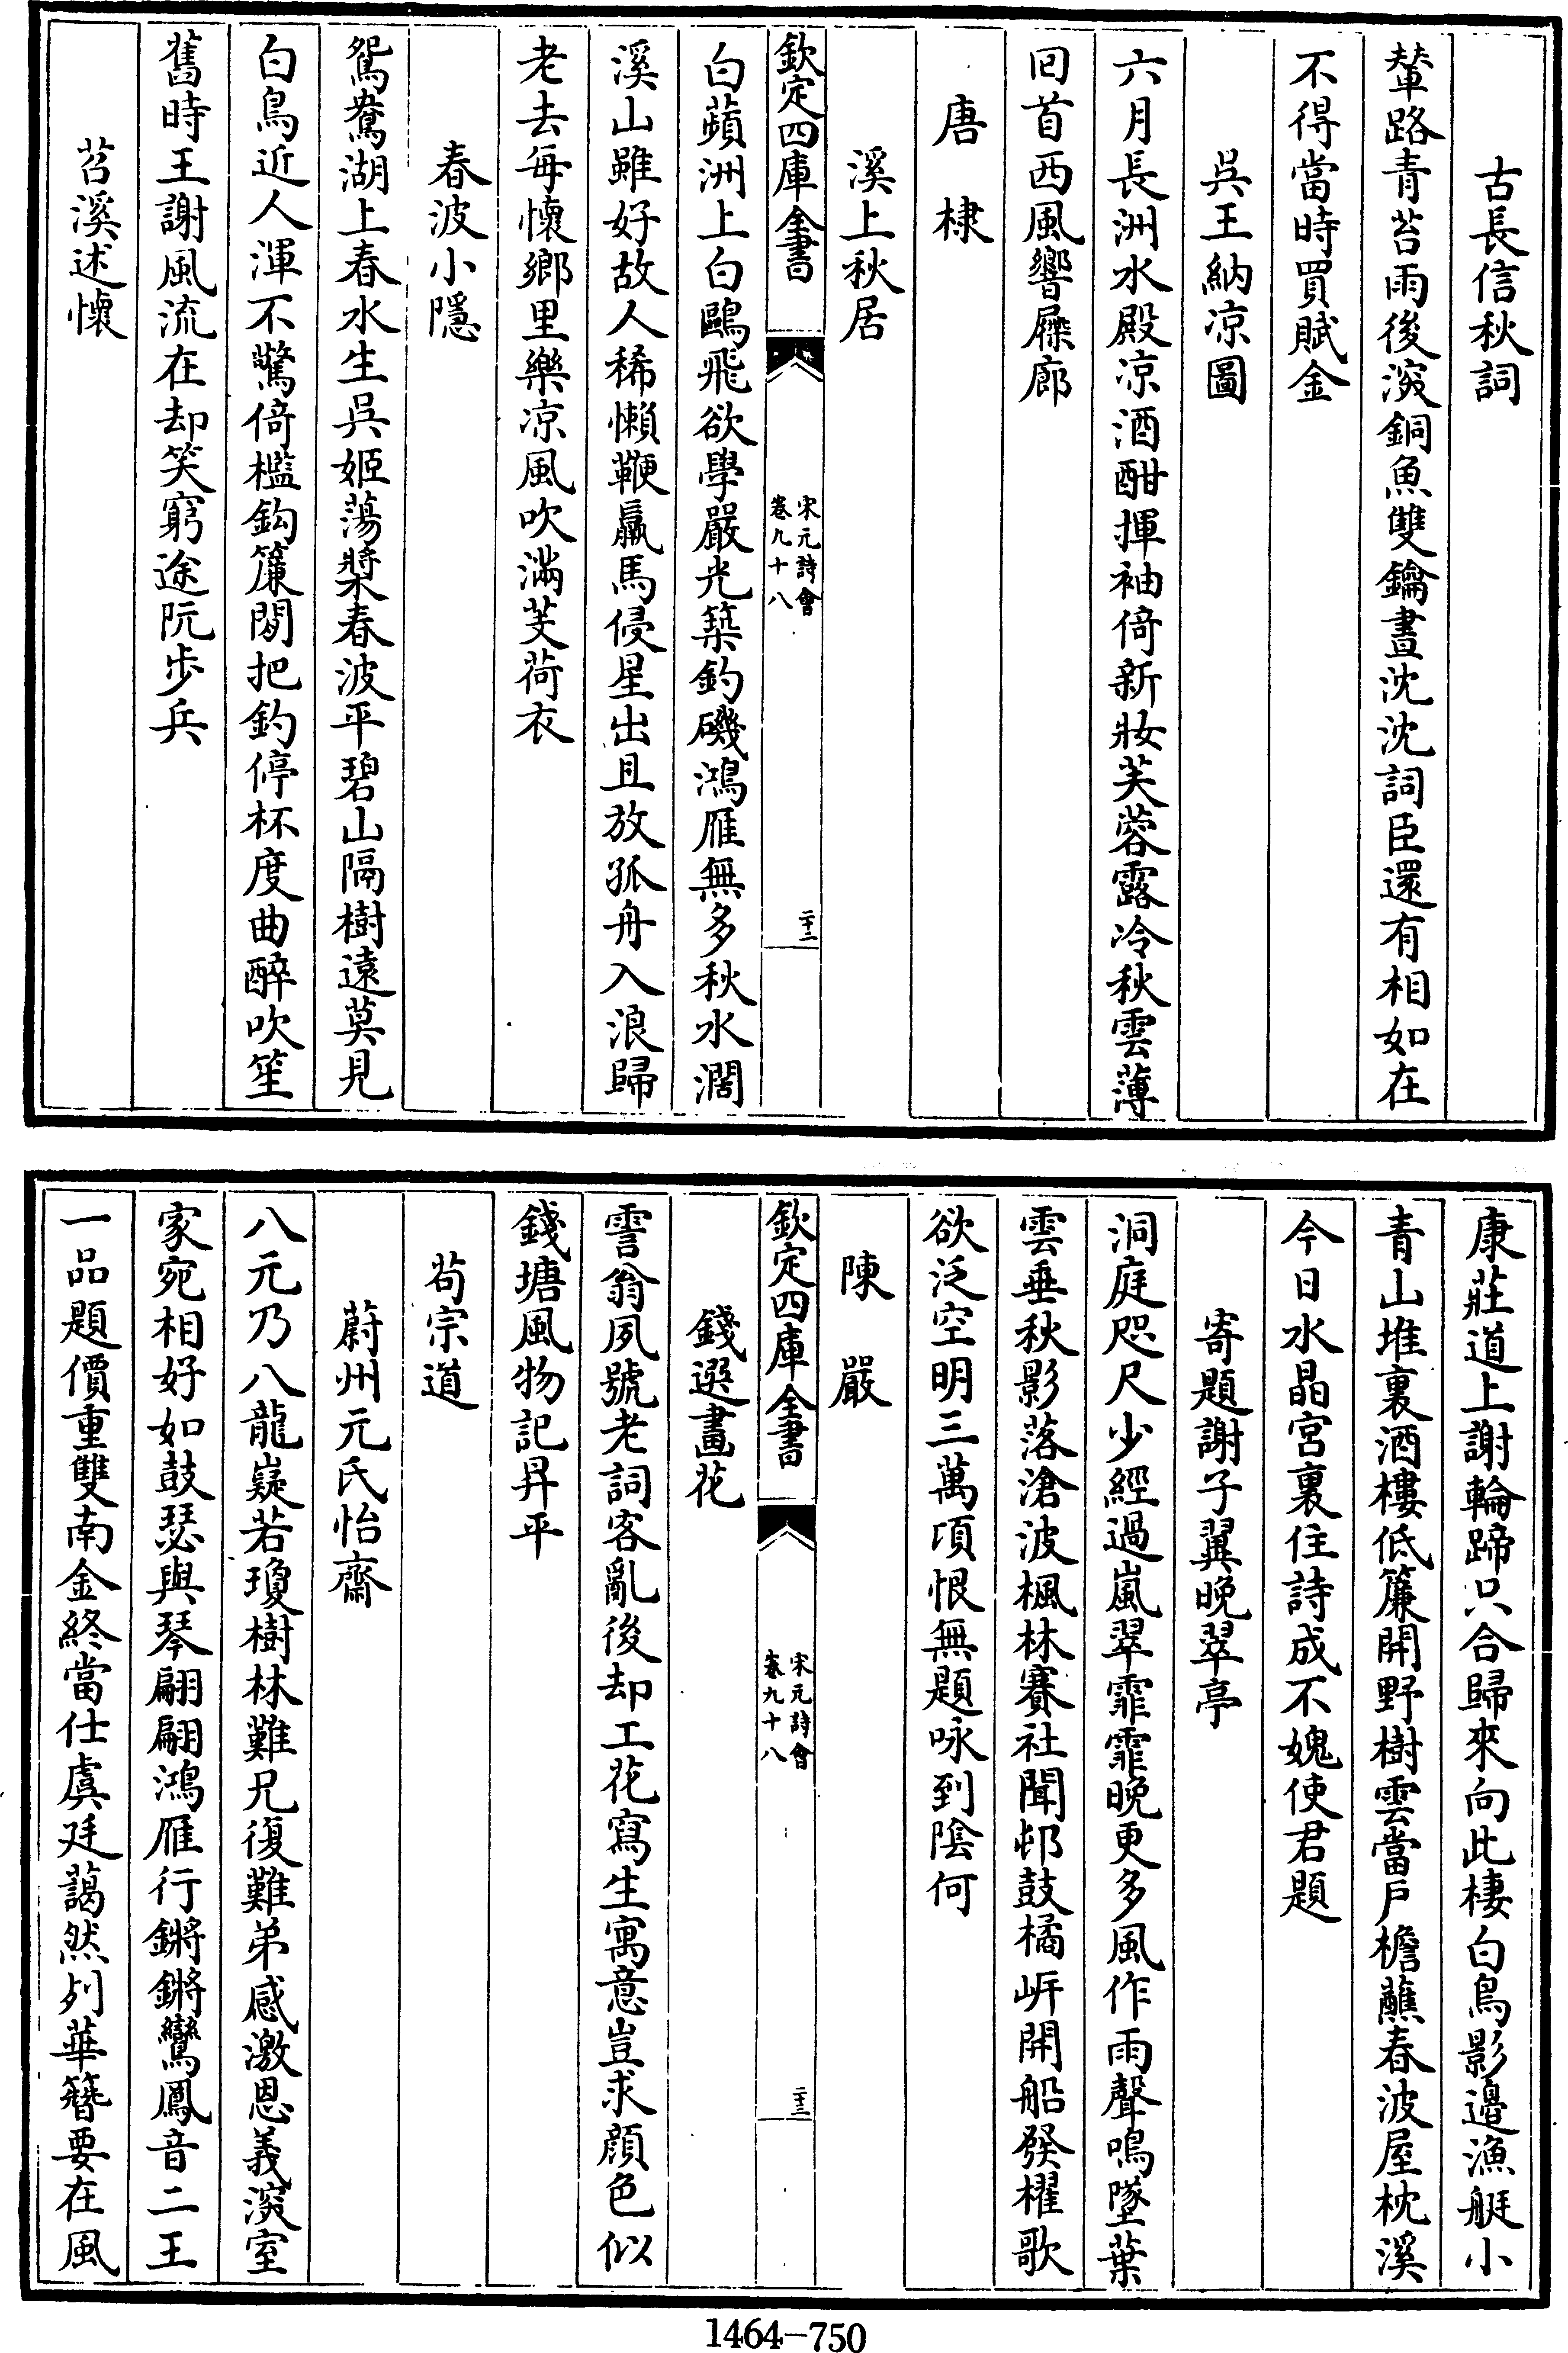 古長信秋詞
輦路青苔雨後深銅魚雙鑰晝沈沈詞臣還有相如在
不得當時買賦金
吳王納凉圖
六月長洲水殿凉酒酣揮袖倚新妝芙蓉露冷秋雲薄
回首西風響屧廊
唐棣
溪上秋居
欽定四庫全書
宋元詩會
卷九十八
二十二
白蘋洲上白鷗飛欲學嚴光築釣磯鴻雁無多秋水濶
溪山雖好故人稀懶鞭羸馬侵星出且放孤舟入浪歸
老去每懷鄉里樂凉風吹滿芰荷衣
春波小隱
鴛鴦湖上春水生吳姬蕩槳春波平碧山隔樹遠莫見
白鳥近人渾不驚倚檻鈎簾閒把釣停杯度曲醉吹笙
舊時王謝風流在却笑窮途阮步兵
苕溪述懷
康莊道上謝輪蹄只合歸來向此棲白鳥影邉漁艇小
青山堆裏酒樓低簾開野樹雲當戶檐蘸春波屋枕溪
今日水晶宮裏住詩成不媿使君題
寄題謝子翼晚翠亭
洞庭咫尺少經過嵐翠霏霏晚更多風作雨聲鳴墜葉
雲垂秋影落滄波楓林賽社聞邨鼓橘岍開船發櫂歌
欲泛空明三萬項恨無題咏到陰何
陳嚴
欽定四庫全書
宋元詩會
卷九十八
二十三
錢選畫花
霅翁夙號老詞客亂後却工花寫生寓意豈求顔色似
錢塘風物記昇平
苟宗道
蔚州元氏怡齋
八元乃八龍嶷若瓊樹林難兄復難弟感激恩義深室
家宛相好如鼓瑟與琴翩翩鴻雁行鏘鏘鸞鳳音二王
一品題價重雙南金終當仕虞廷藹然列華簪要在風
1464-750